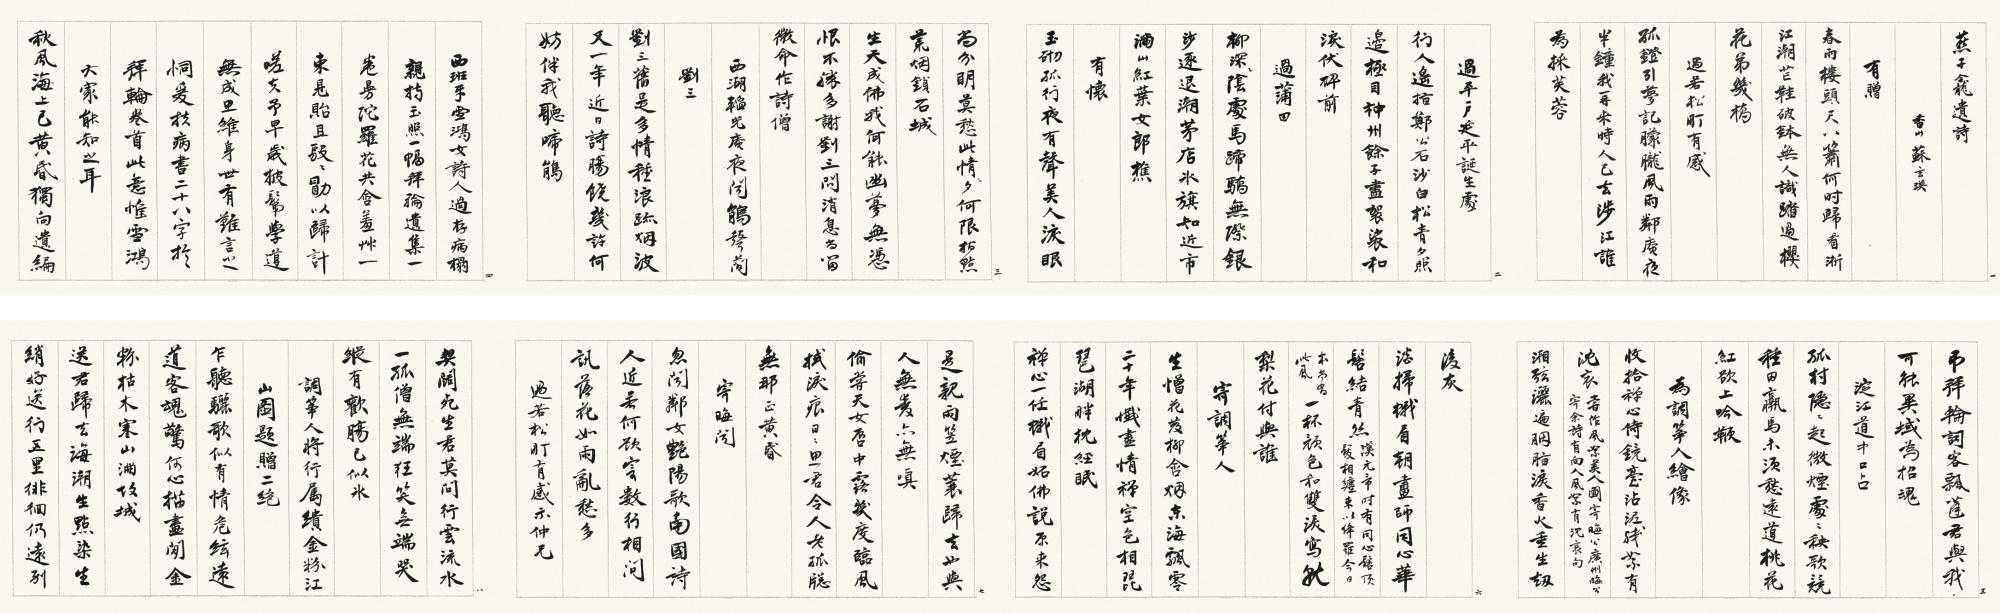 燕子龕遺詩
香山 蘇玄瑛
有贈
春雨樓頭尺八簫何时歸看浙
江潮芒鞋破鉢無人識踏過櫻
花第幾橋
過若松町有感
孤鐙引夢記朦朧風雨鄰庵夜
半鐘我再来時人已去涉江誰
為採芙蓉
一
過平戶延平誕生處
行人遙指鄭公石沙白松青夕照
邉極目神州餘子盡袈裟和
淚伏碑前
過蒲田
柳深陰處馬蹄驕無際銀
沙逐退潮茅店冰旗知近市
滿山紅葉女郎樵
有懷
玉砌孤行夜有聲美人淚眼
二
尚分明莫愁此情夕何限指點
荒烟鎖石城
生天成佛我何能幽夢無憑
恨不勝多謝劉三問消息尚留
微命作詩僧
西湖韜光庵夜聞鵑聲簡
劉三
劉三舊是多情種浪跡烟波
又一年近日詩腸饒幾許何
妨伴我聽啼鵑
三
西班牙雪鴻女詩人過存病榻
親持玉照一幅拜輪遺集一
卷曼陀羅花共含羞艸一
束見貽且殷〻勖以歸計
嗟夫予早歲披鬀學道
無成思維身世有難言之
恫爰扶病書二十八字於
拜輪卷首此意惟雪鴻
大家能知之耳
秋風海上已黃昏獨向遺編
四
弔拜輪詞客飄蓬君與我
可能異域為招魂
淀江道中口占
孤村隱〻起微煙處〻秧歌競
種田羸馬未須愁遠道桃花
紅欲上吟鞭
為調箏人繪像
收拾禪心侍鏡臺沾泥殘絮有
沈哀
湘弦灑遍胭脂淚香火重生劫
五
後灰
淡掃蛾眉朝畫師同心華
髻結青絲
一杯顏色和雙淚寫就
梨花付與誰
寄調箏人
生憎花發柳含烟東海飄零
二十年懺盡情禪空色相琵
琶湖畔枕經眠
禪心一任蛾眉妬佛說原来怨
六
是親雨笠煙蓑歸去也與
人無愛亦無嗔
偷嘗天女唇中露幾度臨風
拭淚痕日〻思君令人老孤窗
無那正黃昏
寄晦聞
忽聞鄰女艷陽歌南國詩
人近若何欲寄數行相問
訊落花如雨亂愁多
過若松町有感示仲兄
七
契闊死生君莫問行雲流水
一孤僧無端狂笑無端哭
縱有歡腸已似冰
調箏人將行属繢金粉江
山圖題贈二絕
乍聽驪歌似有情危絃遠
道客魂驚何心描畫閑金
粉枯木寒山滿故城
送君歸去海潮生點染生
綃好送行五里徘徊仍遠别
八